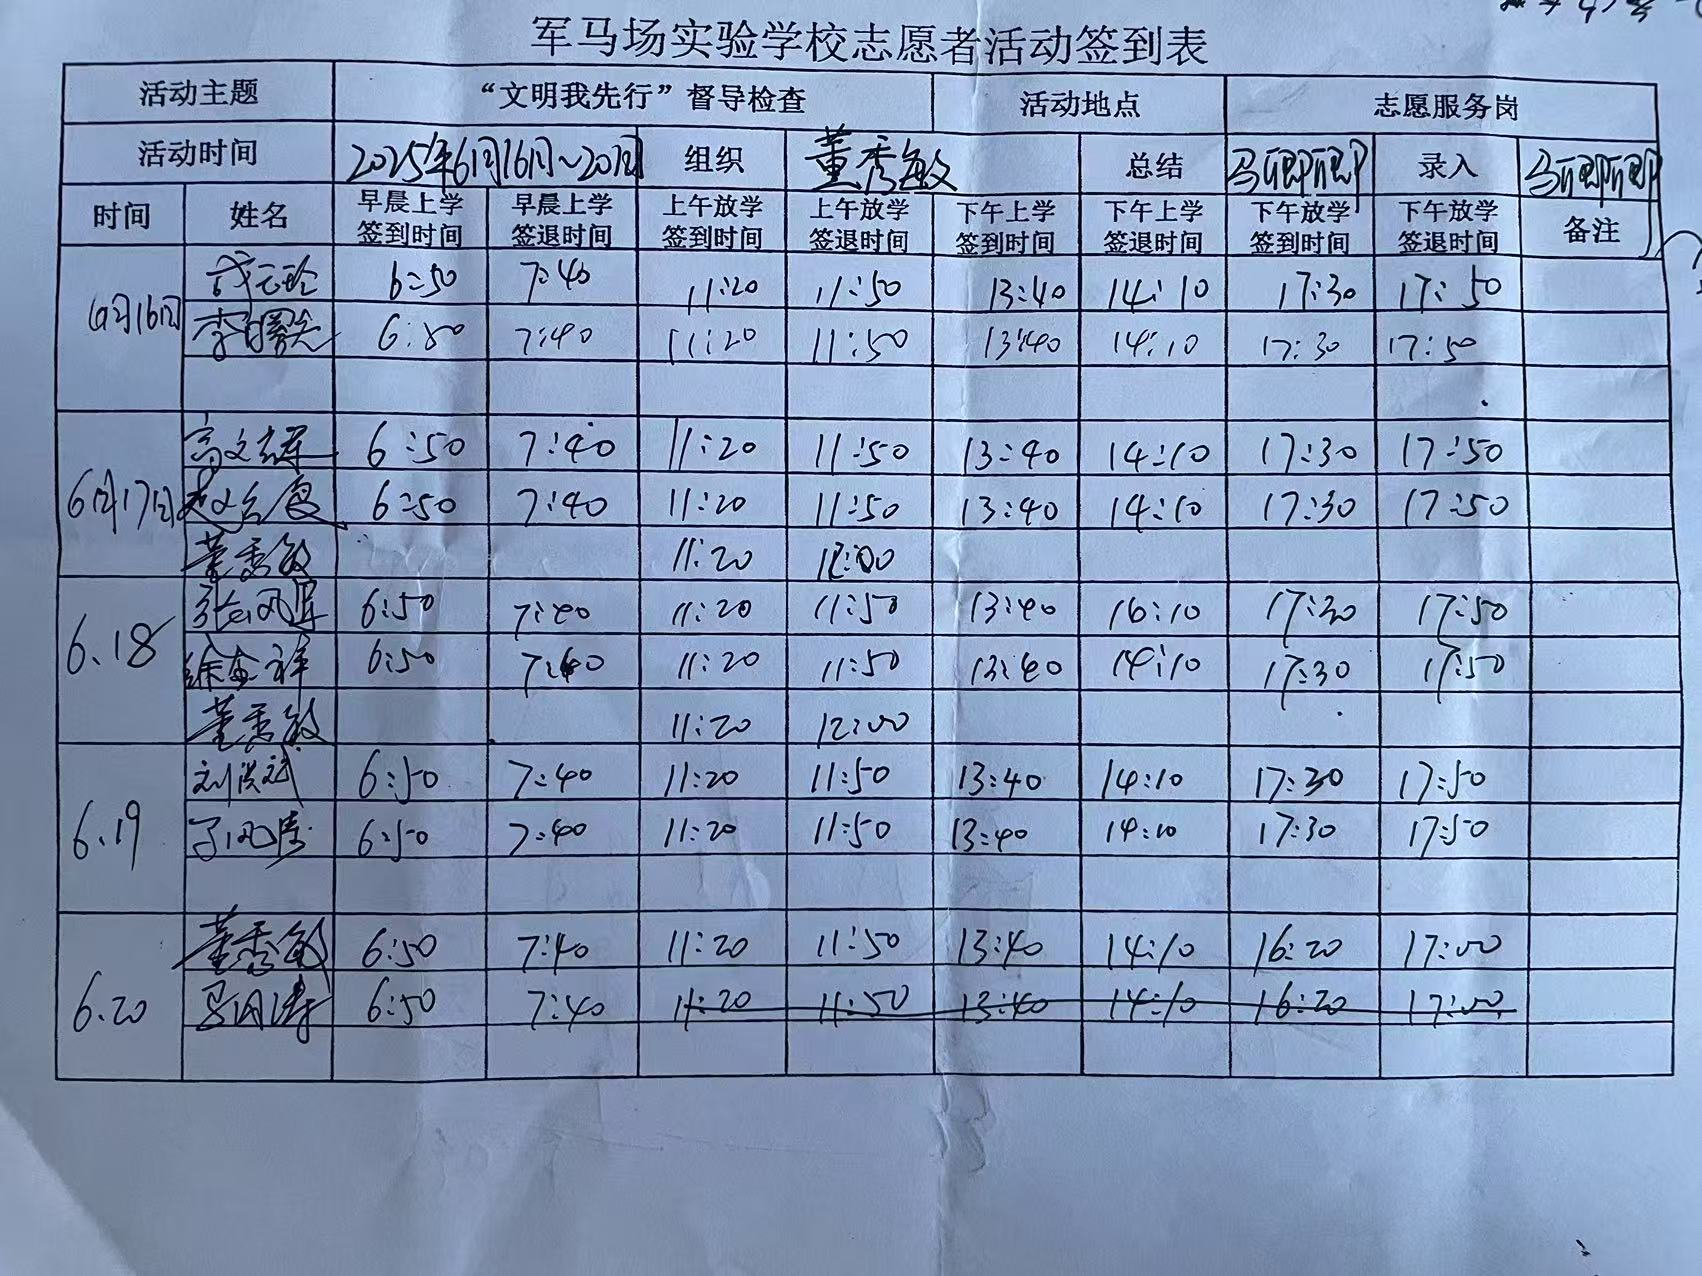 军马场实验学校志愿者活动签到表
活动主题 “文明我先行”督导检查 活动地点 志愿服务岗
活动时间 2025年6月16日~20日 组织 董秀敏 总结 录入
时间 姓名 早晨上学签到时间 早晨上学签退时间 上午放学签到时间 上午放学签退时间 下午上学签到时间 下午上学签退时间 下午放学签到时间 下午放学签退时间 备注
6月16日 6:50 7:40 11:20 11:50 13:40 14:10 17:30 17:50
6:50 7:40 11:20 11:50 13:40 14:10 17:30 17:50
6月17日 6:50 7:40 11:20 11:50 13:40 14:10 17:30 17:50
6:50 7:40 11:20 11:50 13:40 14:10 17:30 17:50
董秀敏 11:20 12:00
6.18 6:50 7:40 11:20 11:50 13:40 16:10 17:30 17:50
徐金祥 6:50 7:40 11:20 11:50 13:40 14:10 17:30 17:50
董秀敏 11:20 12:00
6.19 刘洪斌 6:50 7:40 11:20 11:50 13:40 14:10 17:30 17:50
6:50 7:40 11:20 11:50 13:40 14:10 17:30 17:50
6.20 董秀敏 6:50 7:40 11:20 11:50 13:40 14:10 16:20 17:00
6:50 7:40 11:20 11:50 13:40 14:10 16:20 17:00